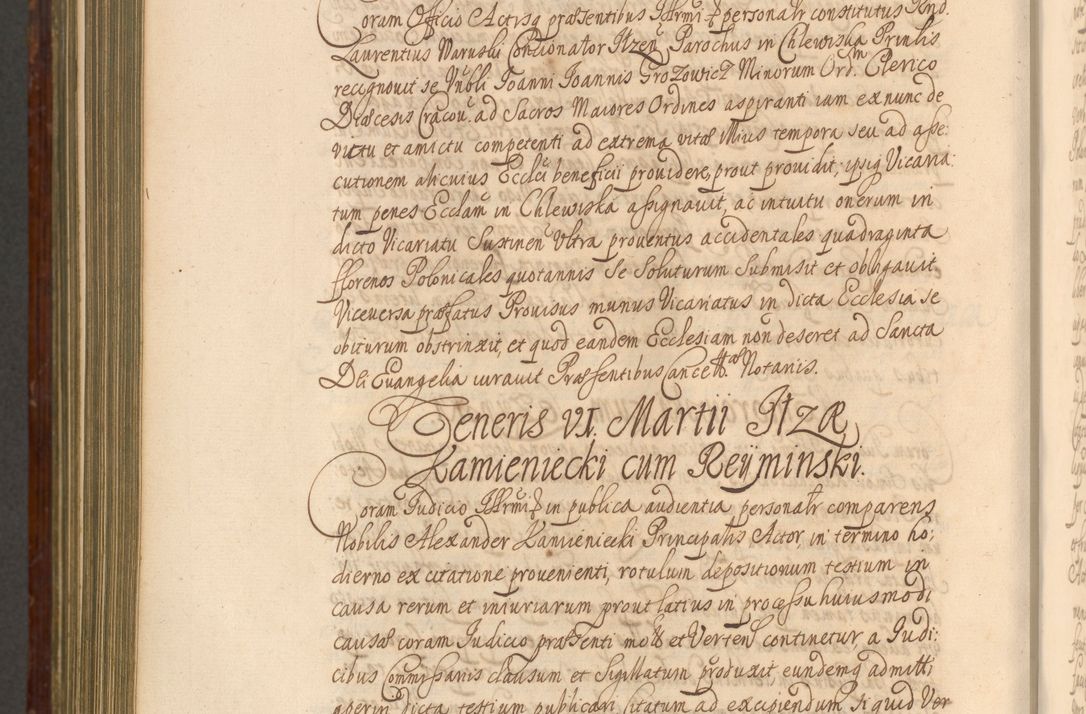 Coram Officio Actisq præsentibus personalr constitutus Rnd.
Laurentius Waruski Concionator Ilzen Parochus in Chlewiska Prinlis
recognouit se Vnobli Ioanni Ioannis Grozowicz Minorum Ordm Clerico
Diæcesis Cracou. ad Sacros Maiores Ordines aspiranti iam ex nunc de
victu et amictu competenti ad extrema vitæ illius tempora seu ad asse:
cutionem alicuius Eccłci beneficii prouidere, prout prouidit, ipsiq Vicaria:
tum penes Ecclam in Chlewiska assignauit, ac intuitu onerum in
dicto Vicariatu Sustinen Vltra prouentus accidentales quadraginta
fflorenos Polonicales quotannis Se Soluturum Submisit et obligauit.
Viceuersa præfatus Prouisus munus Vicariatus in dicta Ecclesia se
obiturum obstrinxit, et quod eandem Ecclesiam non deseret ad Sancta
Dei Euangelia iurauit Præsentibus Cancellæ Notariis.
Veneris VI. Martii Ilzæ
Kamieniecki cum Reÿminski.
Coram Iudicio in publica audientia personalr comparens
Nobilis Alexander Kamieniecki Principalis Actor, in termino ho:
dierno ex citatione prouenienti, rotulum depositionum testium in
causa rerum et iniuriarum prout latius in processu huiusmodi
causæ coram Iudicio præsenti mota et Verten continetur a Iudi:
cibus Commissariis clausum et Sigillatum produxit, eundemq admitti
aperiri dicta testium publicari Citatum ad excipiendum Si quid Ver